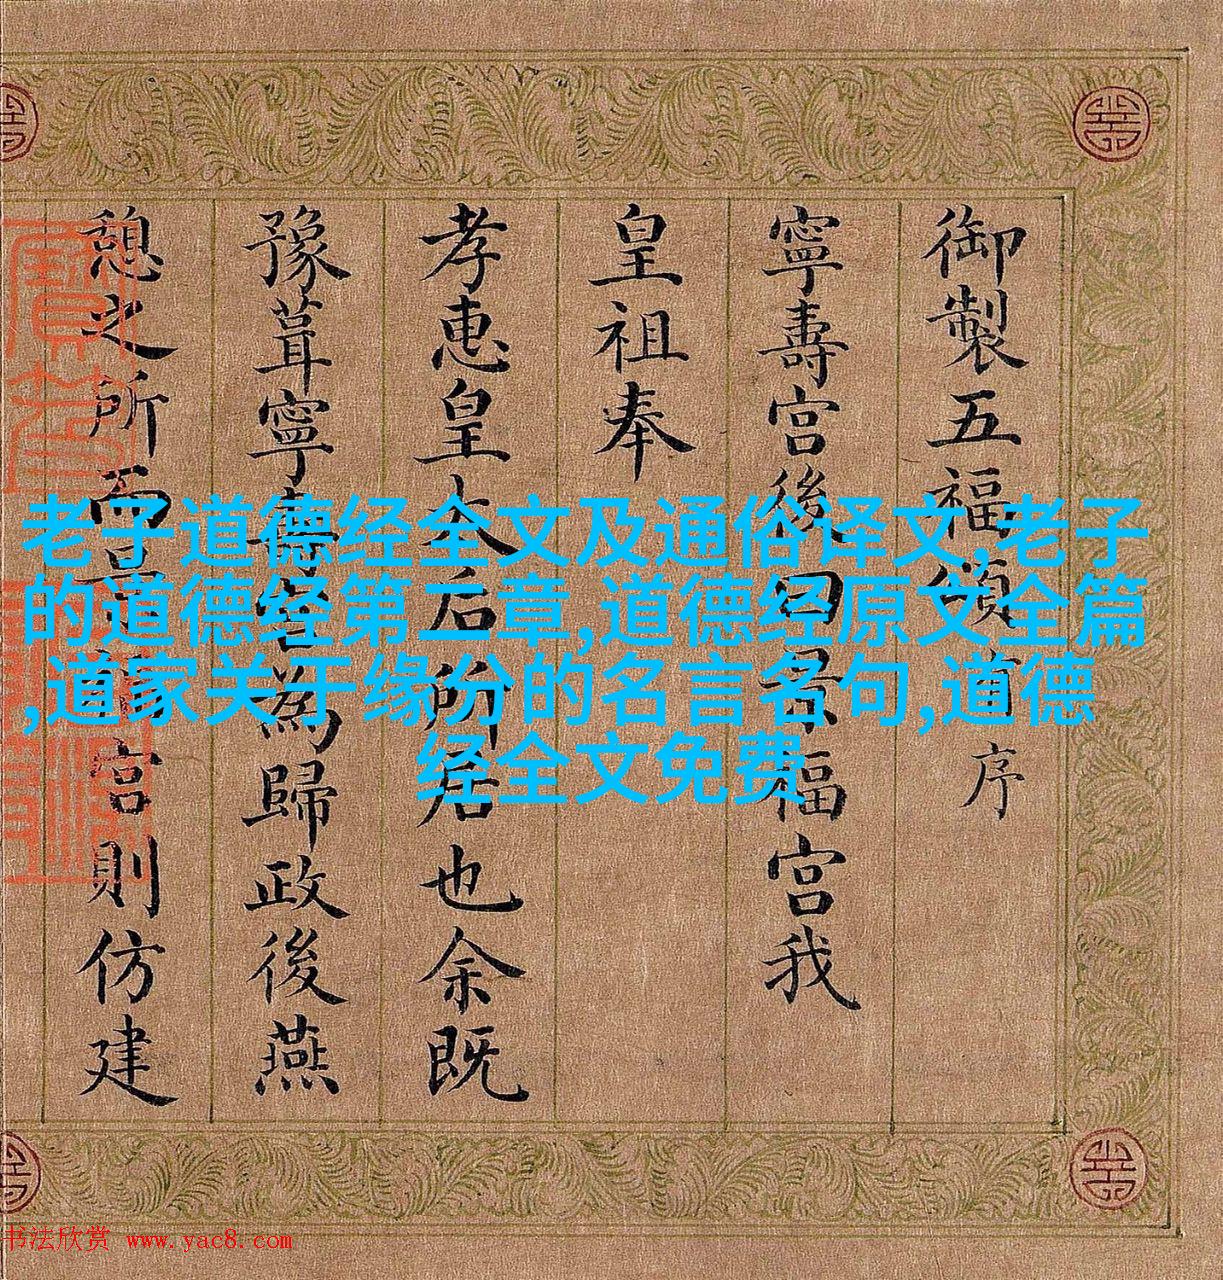 御製五福頌有序
寧壽宫後曰景福宫我
皇祖奉
孝惠皇太后所居也余既
豫葺寧壽宫為歸政後燕
憩之所而景福宫則仿建
老子道德经全文及通俗译文,老子
的道德经第二章,道德经原文全篇
,道家关于缘分的名言名句,道德
经全文免费
书法欣赏 www.yac8.com